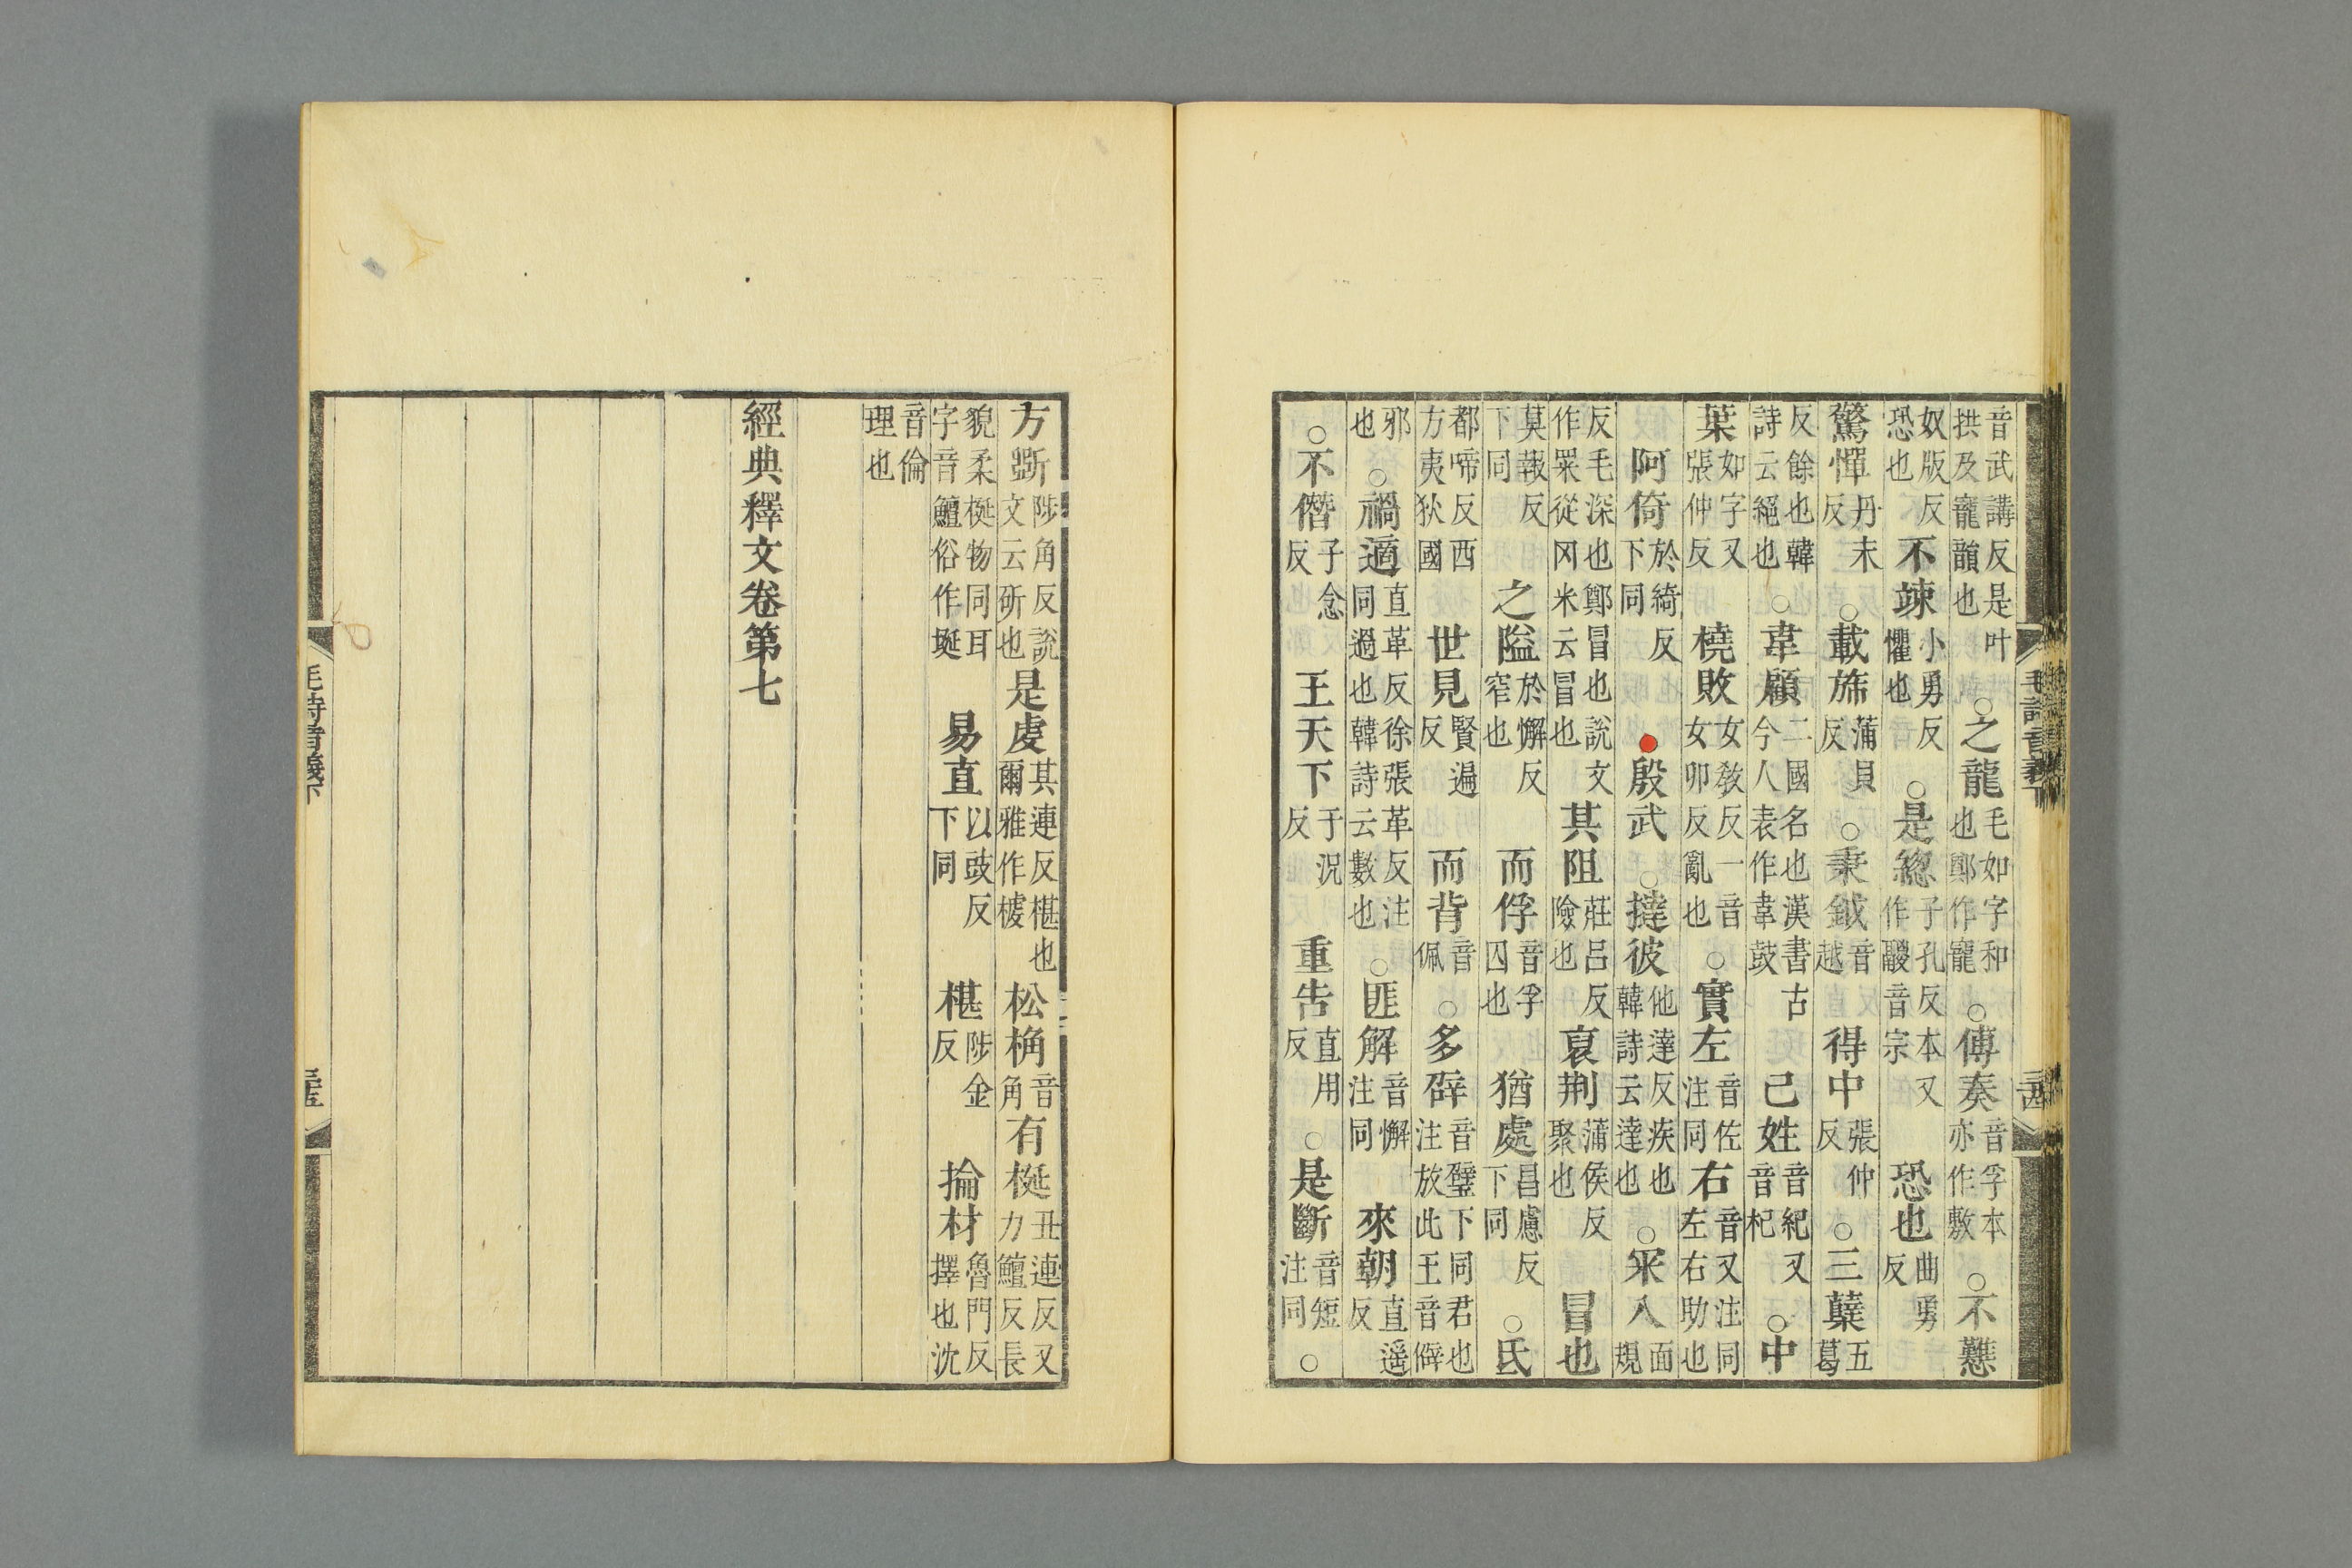 音武講反是叶拱及寵韻也○之龍毛如字和也鄭作寵○傅奏音孚本亦作敷○不戁
奴版反恐也不竦小勇反懼也○是緫子孔反本又作鬷音宗恐也曲勇反
驚憚丹末反○載旆蒲貝反○秉鉞音越得中張仲反○三蘖五葛
反餘也韓詩云絕也○韋顧二國名也漢書古今人表作韋鼓己姓音紀又音杞○中
葉如字又張仲反橈敗女敎反一音女卯反亂也○實左音佐注同右音又注同左右助也
阿倚於綺反下同●殷武○撻彼他達反疾也韓詩云達也○罙入面規
反毛深也鄭冒也說文作罙從冈米云冒也其阻莊呂反險也裒荆蒲侯反聚也冒也
莫報反下同之隘於懈反窄也而俘音孚囚也猶處昌慮反下同○氐
都啼反西方夷狄國世見賢遍反而背音佩○多辟音璧下同君也注放此王音僻
邪也○禍適直革反徐張革反注同過也韓詩云數也○匪解音懈注同來朝直遥反
○不僭子念反王天下于況反重告直用反○是斷音短注同○
方斲陟角反說文云斫也是虔其連反椹也爾雅作榩松桷音角有梴丑連反又力鱣反長
貌柔梴物同耳字音鱣俗作埏易直以豉反下同椹陟金反掄材魯門反擇也沈
音倫理也
經典釋文卷第七
毛詩音義下